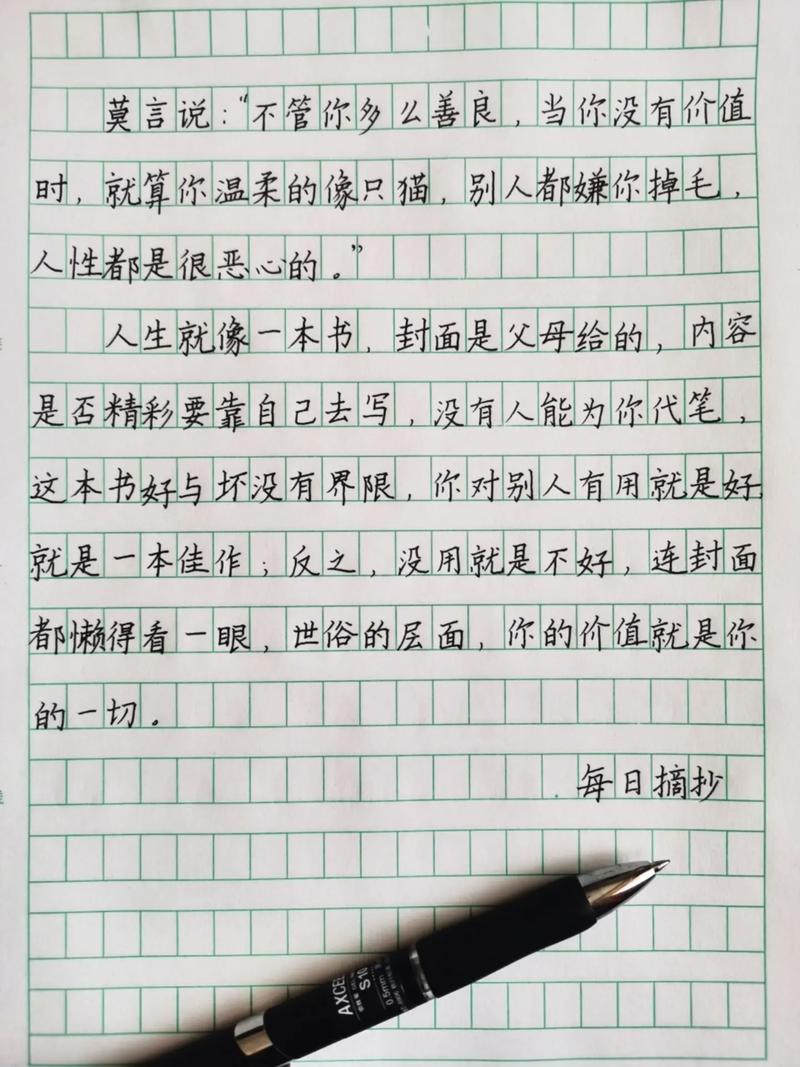 莫言说：“不管你多么善良，当你没有价值
时，就算你温柔的像只猫，别人都嫌你掉毛，
人性都是很恶心的。”
人生就像一本书，封面是父母给的，内容
是否精彩要靠自己去写，没有人能为你代笔，
这本书好与坏没有界限，你对别人有用就是好，
就是一本佳作；反之，没用就是不好，连封面
都懒得看一眼，世俗的层面，你的价值就是你
的一切。
每日摘抄
AXCEL
S10
0.5mm